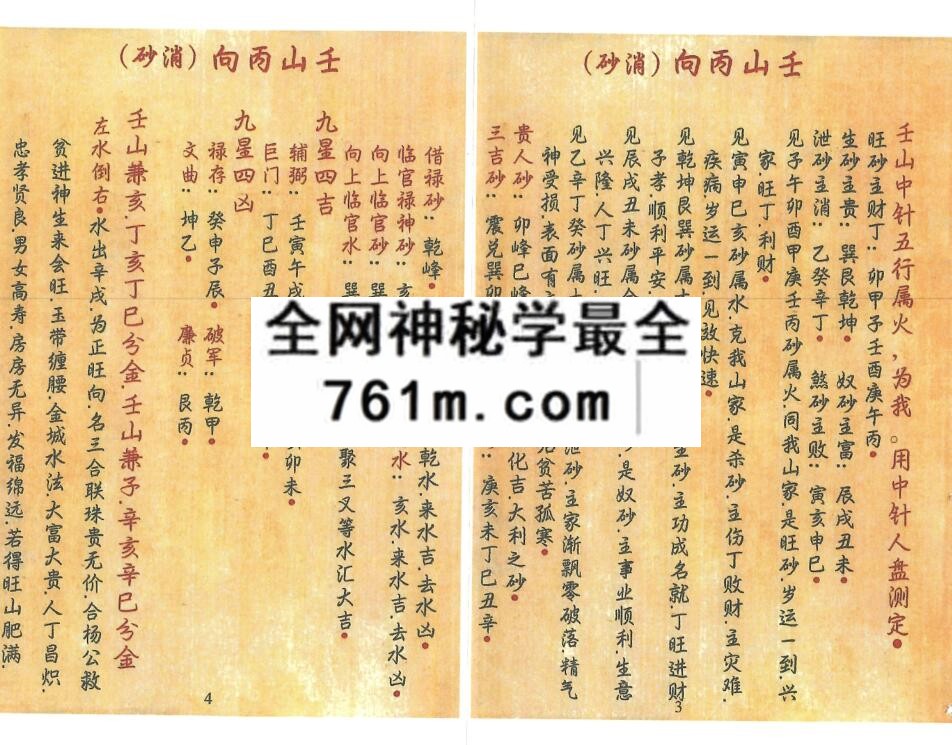 壬山丙向（消砂）
壬山中针五行属火，为我。用中针人盘测定。
旺砂主财：卯甲子壬酉庚午丙。
生砂主贵：巽艮乾坤 奴砂主富：辰戌丑未
泄砂主消：乙癸辛丁。煞砂主败：寅亥申巳。
见子午卯酉甲庚壬丙砂属火.同我山家.是旺砂.岁运一到.兴
家旺丁.利财。
见寅申巳亥砂属水克我山家.是杀砂.主伤丁败财.主灾难.
疾病.岁运一到.见效快速。
见乾坤艮巽砂属 生砂.主功成名就.丁旺进财
子孝顺利平安.
见辰戌丑未砂属 是奴砂.主事业顺利.生意
兴隆.人丁兴旺.
见乙辛丁癸砂属 泄砂.主家渐飘零破落.精气
神受损.表面有 贫苦孤寒。
贵人砂：卯峰巳 化吉.大利之砂。
三吉砂：震兑巽 庚亥未丁巳丑辛。
3
壬山丙向（消砂）
借禄砂：乾峰。 乾水.来水吉.去水凶。
临官禄神砂：亥 水：亥水.来水吉.去水凶。
向上临官砂：巽
向上临官水：巽 聚三叉等水汇大吉。
九星四吉
辅弼：壬寅午戌 卯未
巨门：丁巳酉丑
九星四凶
禄存：癸申子辰。 破军：乾甲。
文曲：坤乙。 廉贞：艮丙。
壬山兼亥.丁亥丁巳分金.壬山兼子.辛亥辛巳分金
左水倒右。水出辛戌.为正旺向.名三合联珠贵无价.合杨公救
贫进神生来会旺.玉带缠腰.金城水法.大富大贵.人丁昌炽.
忠孝贤良.男女高寿.房房无异.发福绵远.若得旺山肥满.
4
全网神秘学最全
761m.com